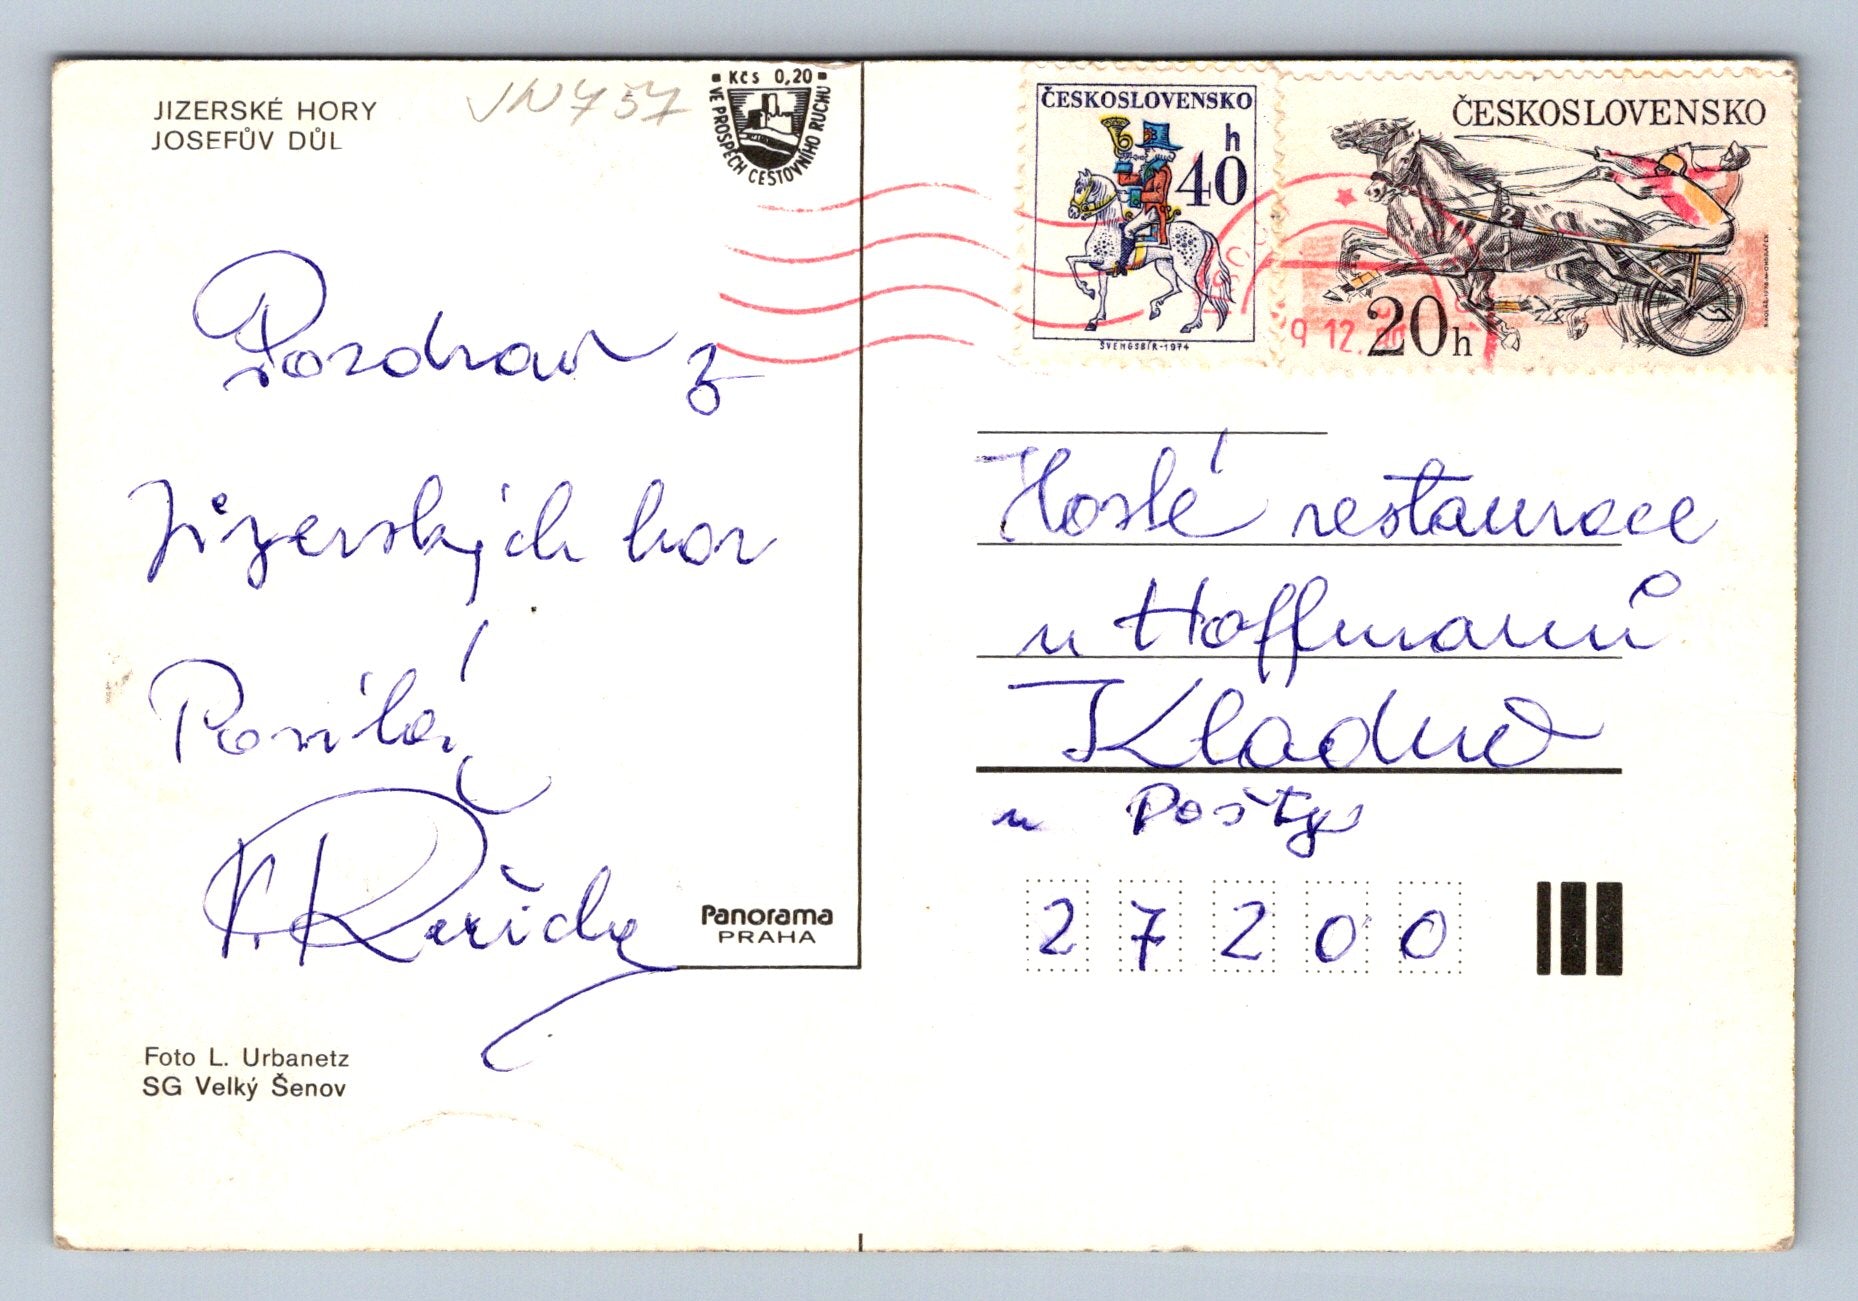 JIZERSKÉ HORY
JOSEFŮV DŮL
VN757
Kčs 0,20
VE PROSPĚCH CESTOVNÍHO RUCHU
Pozdrav z
Jizerských hor
Posílá
Panorama
PRAHA
Foto L. Urbanetz
SG Velký Šenov
ČESKOSLOVENSKO
40 h
ŠVENGSBÍR-1974
ČESKOSLOVENSKO
20h
9 12.
Hosté restaurace
u Hoffmanů
Kladno
u Pošty
27200